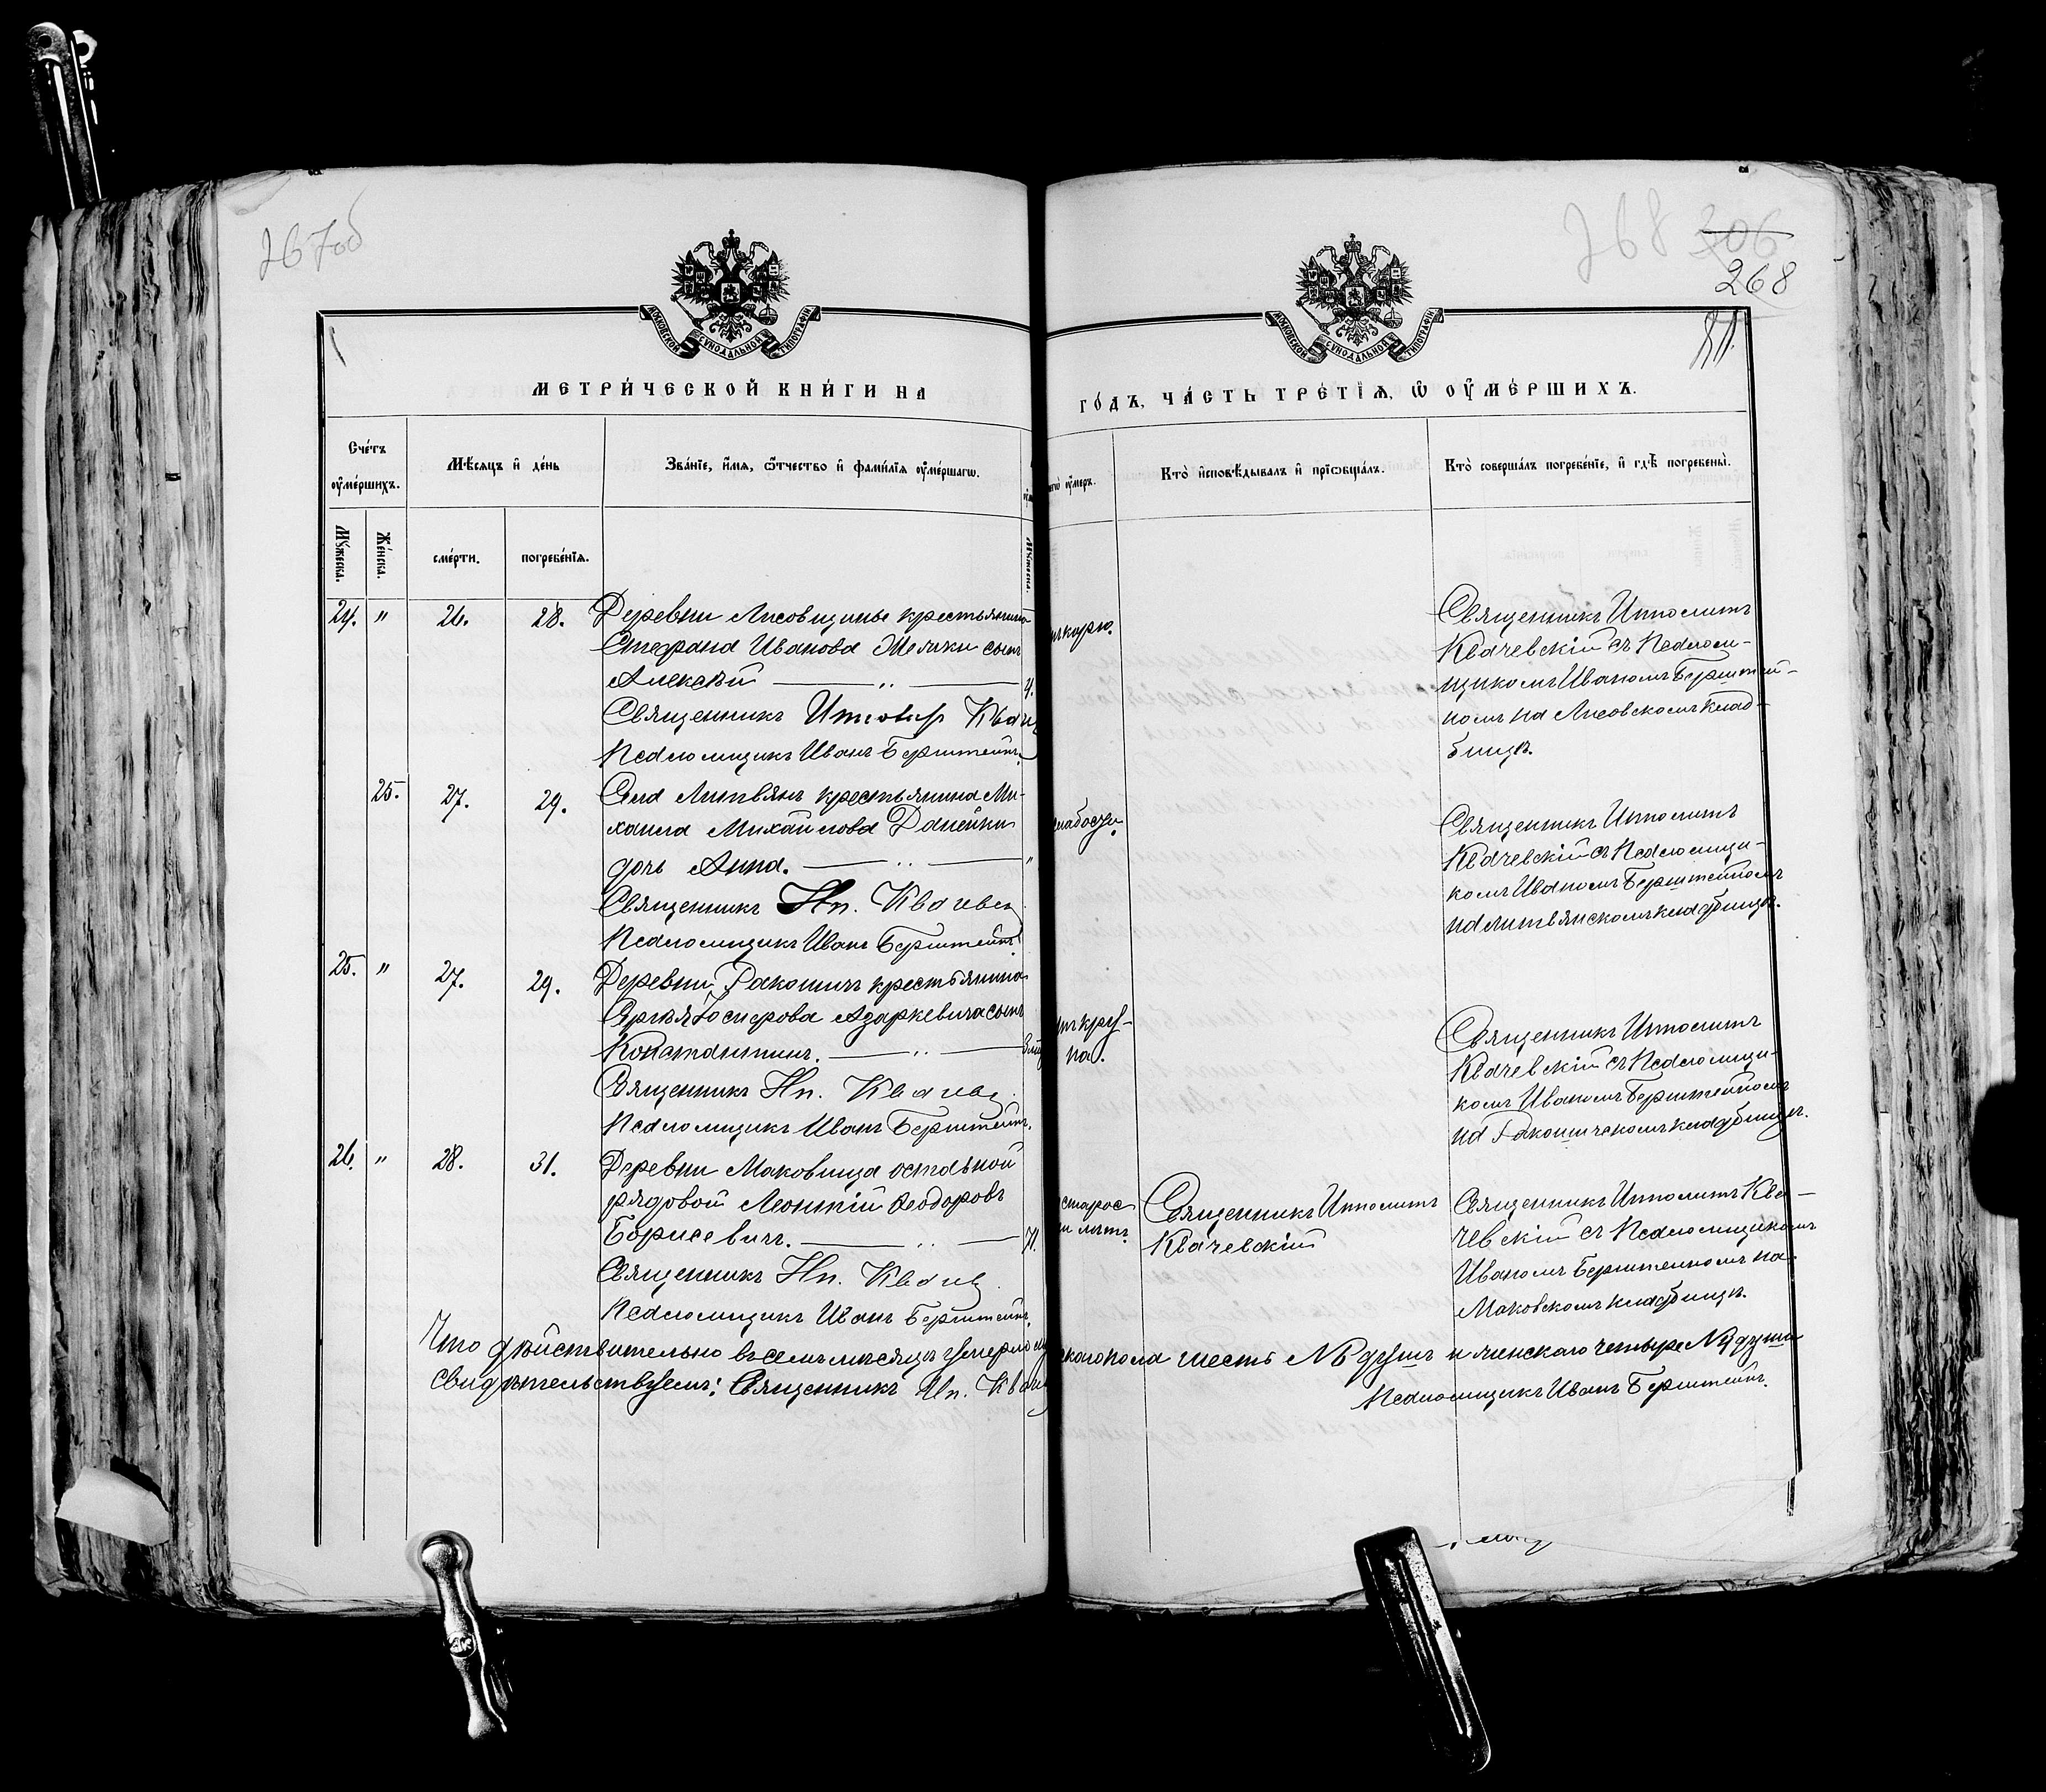 267об
268 306
268
МОСКОВСКОЙ СУНОДАЛЬНОЙ ТИПОГРАФІИ
МОСКОВСКОЙ СУНОДАЛЬНОЙ ТИПОГРАФІИ
МЕТРИ́ЧЕСКОЙ КНИ́ГИ НА
ГО́ДЪ, ЧА́СТЬ ТРЕ́ТІѦ, Ѡ҆ ОУ҆МЕ́РШИХЪ.
Сче́тъ оу҆ме́ршихъ.
Мѣ́сяцъ и҆ де́нь
Зва́нїе, и҆́мѧ, ѻ҆́тчество и҆ фами́лїѧ оу҆ме́ршагѡ.
оу҆ме́ръ.
Кто̀ и҆сповѣ́дывалъ и҆ прїѡбща́лъ.
Кто̀ соверша́лъ погребе́нїе, и҆ гдѣ̀ погребены̀.
Мꙋ́жеска.
Же́нска.
сме́рти.
погребе́нїѧ.
Мꙋ́жеска.
24. " 26. 28. Деревни Лисовщины крестьянина
Стефана Иванова сынъ
Алексѣй — " —
Священникъ Ипполитъ Квач
Псаломщикъ Иванъ Берштейнъ.
корью.
Священникъ Ипполитъ
Квачевскій съ Псаломщикомъ Иваномъ Берштейномъ на Лисовскомъ кладбищѣ.
25. 27. 29. Села Литвянъ крестьянина Ми-
хаила Михайлова Данейки
дочь Анна. — " — "
Священникъ Ип. Квачевс
Псаломщикъ Иванъ Берштейнъ
слабости.
Священникъ Ипполитъ
Квачевскій съ Псаломщи-
комъ Иваномъ Берштейномъ
на литвянскомъ кладбищѣ.
25. " 27. 29. Деревни Ракошичъ крестьянина
Сергѣя Іосифова Азаркевича сынъ
Константинъ. — " —
Священникъ Ип. Квачевс
Псаломщикъ Иванъ Берштейнъ.
отъ кру-
па.
Священникъ Ипполитъ
Квачевскій съ Псаломщи-
комъ Иваномъ Берштейномъ
на Ракошичскомъ кладбищѣ.
26. " 28. 31. Деревни Маковища
рядовой Леонтій Ѳеодоровъ
Борисевичъ. — " —
Священникъ Ип. Квачев
Псаломщикъ Иванъ Берштейнъ.
старос
ти лѣтъ.
Священникъ Ипполитъ
Квачевскій
Священникъ Ипполитъ Ква-
чевскій съ Псаломщикомъ
Иваномъ Берштейномъ на
Маковскомъ кладбищѣ.
Что дѣйствительно въ семъ мѣсяцѣ умерло му
скаго пола шесть №6 душъ и женскаго четыре №4 душа
свидѣтельствуемъ: Священникъ Ип. Квачев
Псаломщикъ Иванъ Берштейнъ.